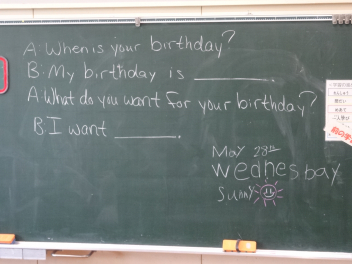 A: When is your birthday?
B: My birthday is ________.
A: What do you want for your birthday?
B: I want ______.
May 28th
Wednesbay
Sunny